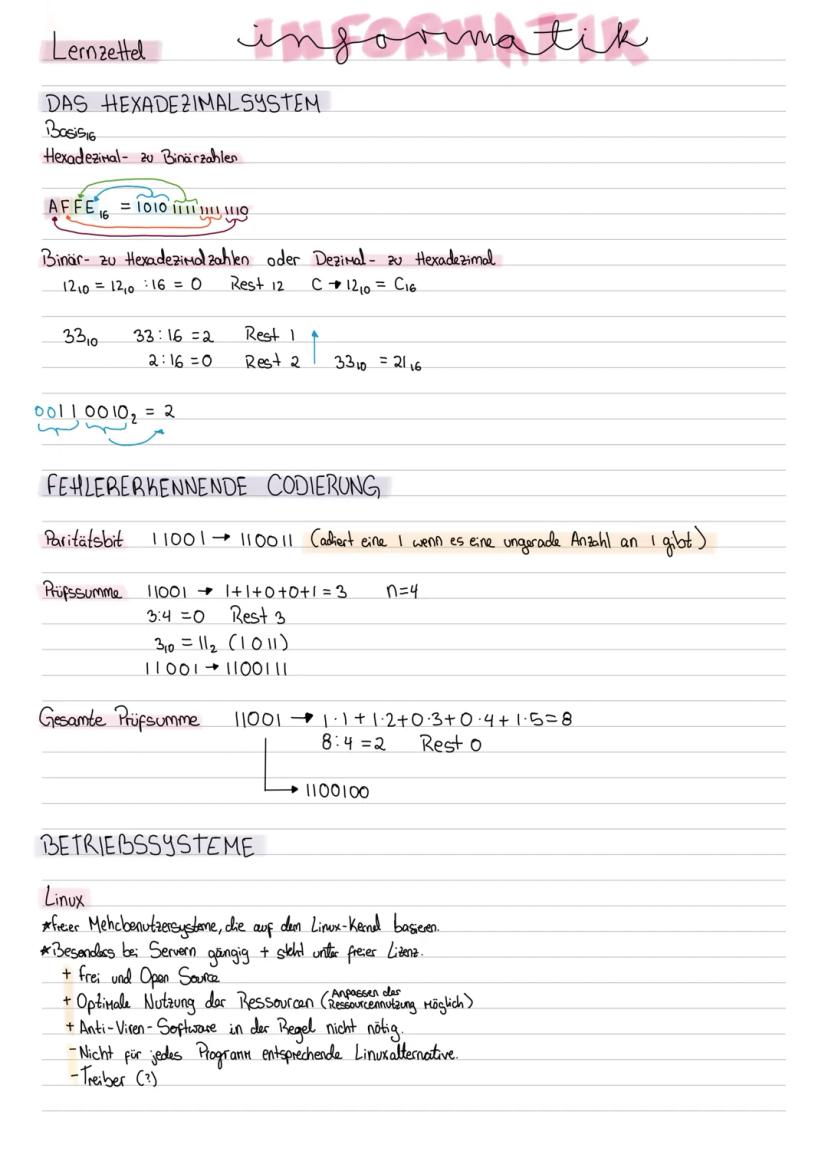 Lernzettel
INFORMATIK
informatik
DAS HEXADEZIMALSYSTEM
Basis₁₆
Hexadezimal- zu Binärzahlen
AFFE₁₆ = 1010 1111 1111 1110
Binär- zu Hexadezimalzahlen oder Dezimal- zu Hexadezimal
12₁₀ = 12₁₀ : 16 = 0 Rest 12 C → 12₁₀ = C₁₆
33₁₀ 33 : 16 = 2 Rest 1
2 : 16 = 0 Rest 2 33₁₀ = 21₁₆
0011 0010₂ = 2
FEHLERERKENNENDE CODIERUNG
Paritätsbit 11001 → 110011 (adiert eine 1 wenn es eine ungerade Anzahl an 1 gibt)
Prüfssumme 11001 → 1+1+0+0+1 = 3 n=4
3:4 = 0 Rest 3
3₁₀ = 11₂ (1011)
11001 → 1100111
Gesamte Prüfsumme 11001 → 1·1 + 1·2+0·3+0·4+1·5=8
8:4 = 2 Rest 0
→ 1100100
BETRIEBSSYSTEME
Linux
*freier Mehrbenutzersysteme, die auf dem Linux-Kernel basieren.
*Besonders bei Servern gängig + steht unter freier Lizenz.
+ frei und Open Source
+ Optimale Nutzung der Ressourcen (Anpassen der Ressourcennutzung möglich)
+ Anti-Viren-Software in der Regel nicht nötig.
- Nicht für jedes Programm entsprechende Linuxalternative.
- Treiber (?)